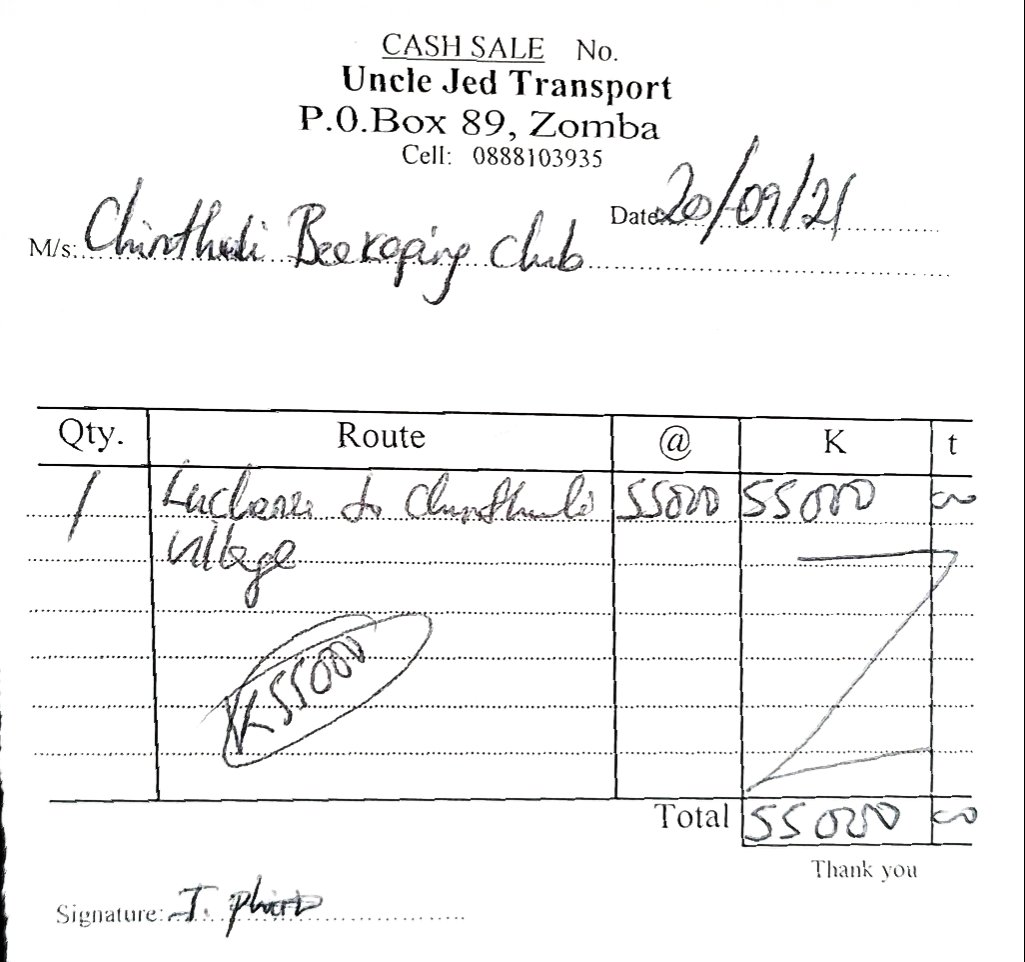 CASH SALE No.
Uncle Jed Transport
P.O.Box 89, Zomba
Cell: 0888103935
Date: 20/09/21
M/s: Chinthuli Beekeping Club
Qty. Route @ K t
1 to Chinthuli 55000 55000 00
village
K55000
Total 55000 00
Thank you
Signature: J. Phiri